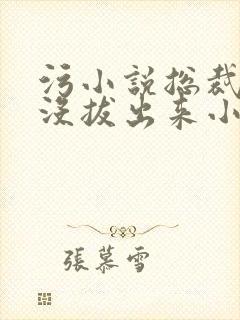 污小説总裁
没拔出来小
張慕雪